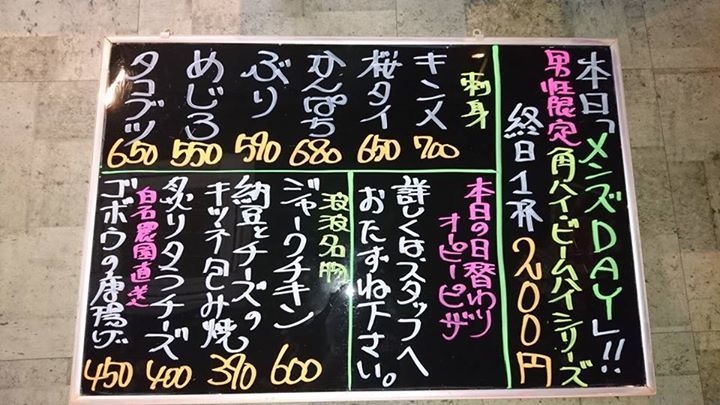 本日「メンズDAY」!!
男性限定 角ハイ・ビームハイシリーズ
終日1杯200円
刺身
キンメ 700
桜タイ 650
かんぱち 680
ぶり 590
めじろ 550
タコブツ 650
本日の日替わり
オーピーピザ
詳しくはスタッフへ
おたずね下さい。
波波名物
ジャークチキン 600
納豆とチーズの
キツネ包み焼 390
炙りタラチーズ 400
白石農園直送
ゴボウの唐揚げ 450